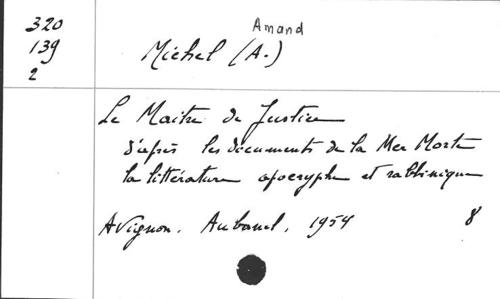 320
139
2
Amand
Michel (A.)
Le Maitre de Justice
d'après les documents de la Mer Morte
la littérature apocryphe et rabbinique
Avignon. Aubanel, 1954 8